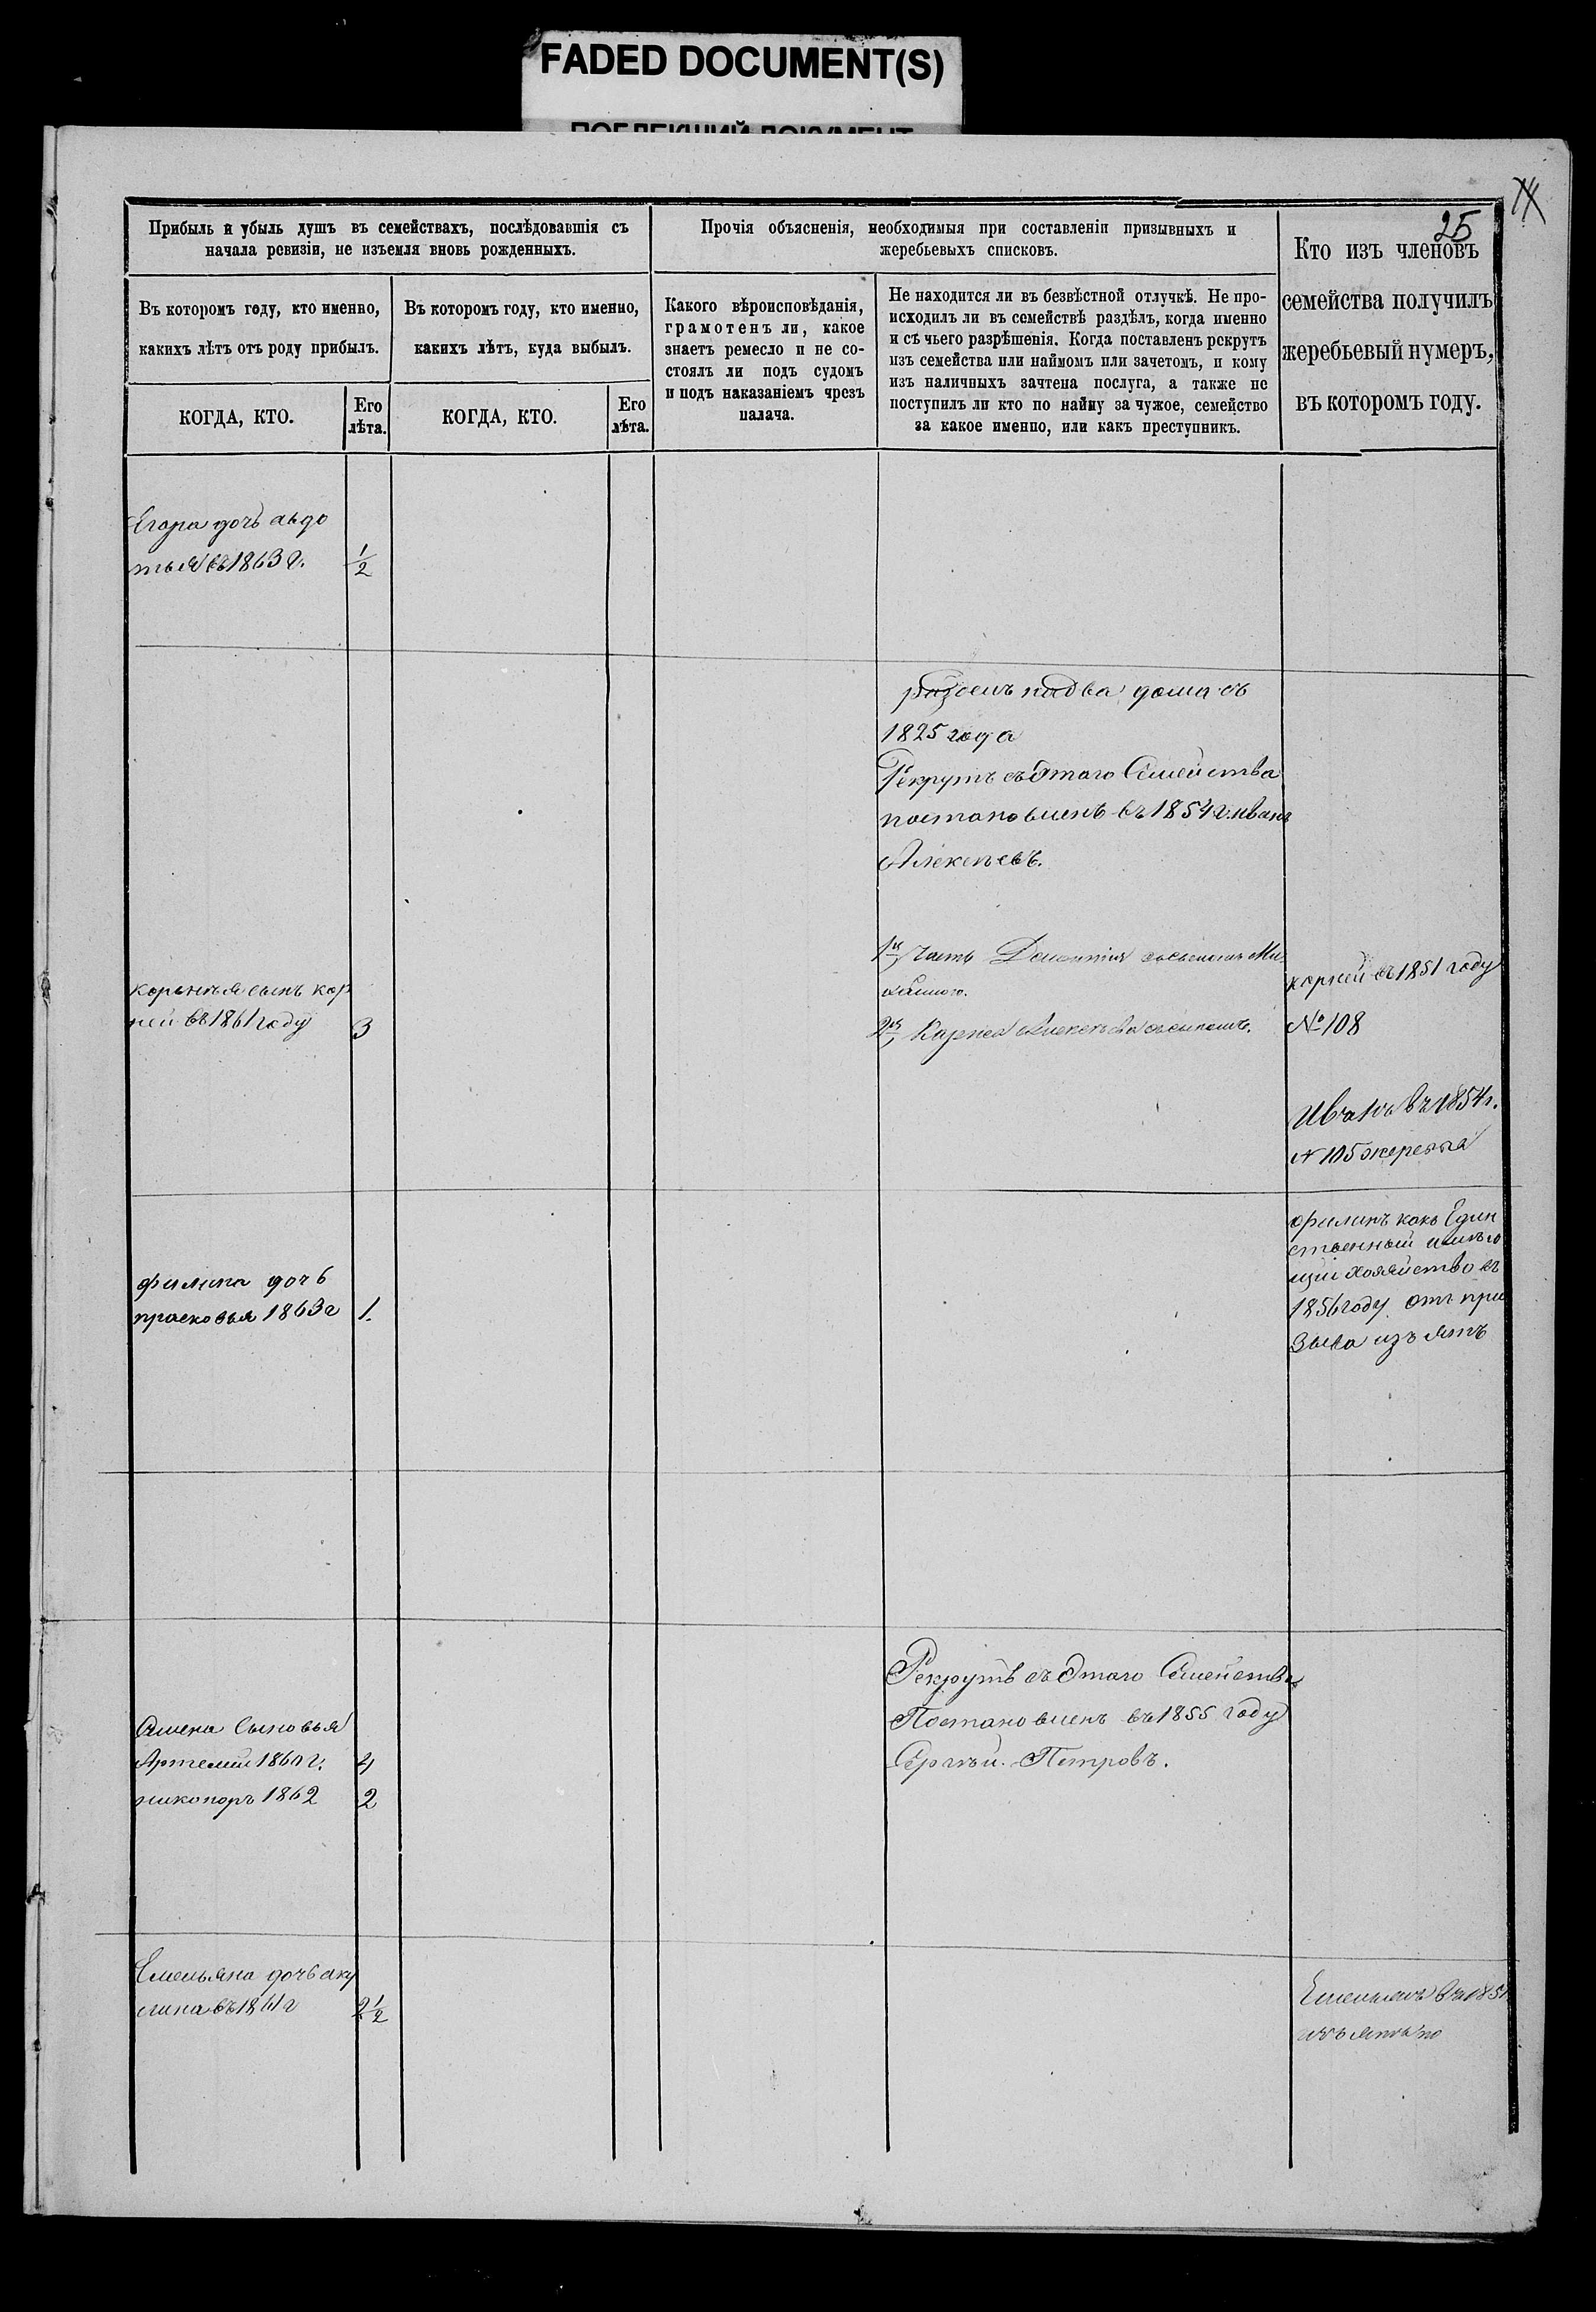 FADED DOCUMENT(S)
ПОБЛЕКШИЙ ДОКУМЕНТ
25
Прибыль и убыль душъ въ семействахъ, послѣдовавшія съ
начала ревизіи, не изъемля вновь рожденныхъ.
Въ которомъ году, кто именно,
какихъ лѣтъ отъ роду прибылъ.
КОГДА, КТО.
Его
лѣта.
Въ которомъ году, кто именно,
какихъ лѣтъ, куда выбылъ.
КОГДА, КТО.
Его
лѣта.
Прочія объясненія, необходимыя при составленіи призывныхъ и
жеребьевыхъ списковъ.
Какого вѣроисповѣданія,
грамотенъ ли, какое
знаетъ ремесло и не со-
стоялъ ли подъ судомъ
и подъ наказаніемъ чрезъ
палача.
Не находится ли въ безвѣстной отлучкѣ. Не про-
исходилъ ли въ семействѣ раздѣлъ, когда именно
и съ чьего разрѣшенія. Когда поставленъ рекрутъ
изъ семейства или наймомъ или зачетомъ, и кому
изъ наличныхъ зачтена послуга, а также не
поступилъ ли кто по найму за чужое, семейство
за какое именно, или какъ преступникъ.
Кто изъ членовъ
семейства получилъ
жеребьевый нумеръ,
въ которомъ году.
Егора дочь авдо
тья въ 1863 г. 1/2
раздель на два дома съ
1825 года
Рекрутъ съ Этаго Семейства
постановленъ въ 1854 г. иванъ
Алексеевъ.
1я часть
2я Карнея Алексеева
корнѣя сынъ кор
ней въ 1861 году 3
корней въ 1851 году
№ 108
Иванъ въ 1854 г.
№ 105 жеребья
филипа дочь
прасковья 1863 г 1.
филипъ какъ Един
ственный имѣю
щии хозяйство въ
1856 году отъ при
зыва изъятъ
Рекрутъ съ Этаго Семейства
Постановленъ въ 1855 году
Сергѣй Петровъ.
сыновья
Артемий 1860 г. 4
никопоръ 1862 2
Емельяна дочь аку
лина въ 1861 г 2 1/2
Емельянъ въ 1851